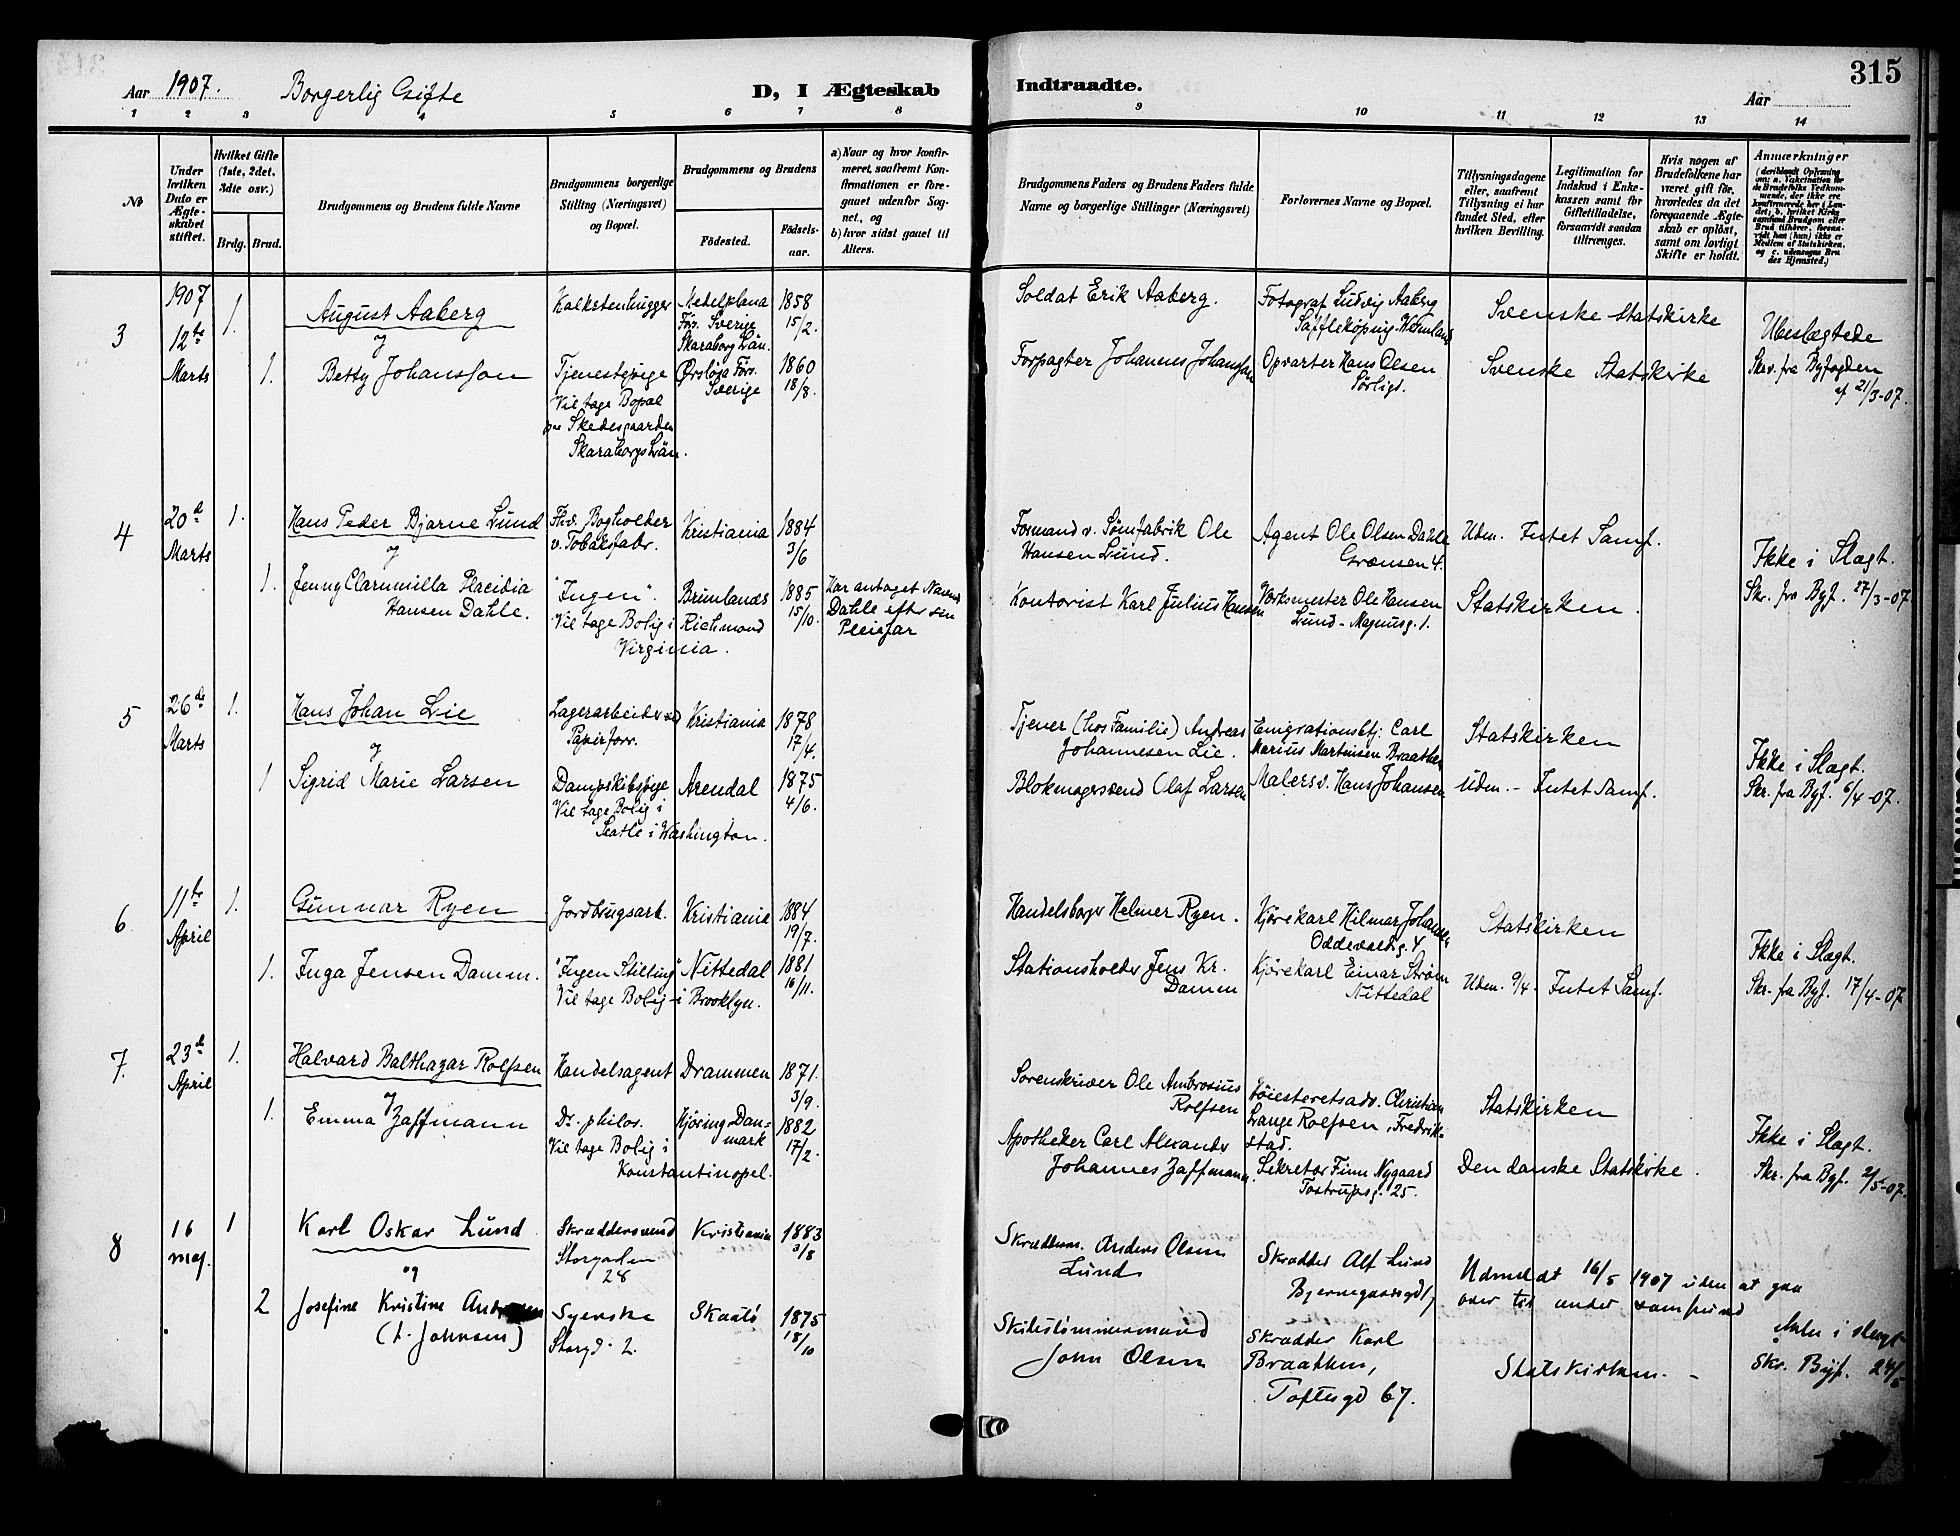 Aar 1907.
Borgerlig Gifte
D, I Ægteskab
Indtraadte.
Aar
315
1 2 3 4 5 6 7 8 9 10 11 12 13 14
№
Under
hvilken
Dato er
Ægte-
skabet
stiftet.
Hvilket Gifte
(1ste, 2det,
3die osv.)
Brdg.
Brud.
Brudgommens og Brudens fulde Navne
Brudgommens borgerlige
Stilling (Næringsvei)
og Bopæl.
Brudgommens og Brudens
Fødested.
Fødsels-
aar.
a) Naar og hvor konfir-
meret, saafremt Kon-
firmationen er fore-
gaaet udenfor Sog-
net, og
b) hvor sidst gaaet til
Alters.
Brudgommens Faders og Brudens Faders fulde
Navne og borgerlige Stillinger (Næringsvei)
Forlovernes Navne og Bopæl.
Tillysningsdagene
eller, saafremt
Tillysning ei har
fundet Sted, efter
hvilken Bevilling.
Legitimation for
Indskud i Enke-
kassen samt for
Giftetilladelse,
forsaavidt saadan
tiltrænges.
Hvis nogen af
Brudefolkene har
været gift før,
hvorledes da det
foregaaende Ægte-
skab er opløst,
samt om lovligt
Skifte er holdt.
Anmærkninger
(deriblandt Oplysning
om: a. Vakcination for
de Brudefolks Vedkom-
mende, der ikke ere
konfirmerede her i Lan-
det; b. hvilket Kirke-
samfund Brudgom eller
Brud tilhører, forsaa-
vidt han (hun) ikke er
Medlem af Statskirken,
og c. udensogns Bru-
des Hjemsted.)
3
1907
12te
Marts
1.
August Aaberg
og
Kalkstenhugger
Medelplana
Förs. Sverige
Skaraborg Län.
1858
15/2.
Soldat Erik Aaberg.
Fotograf Ludvig Aaberg
Säffleköping-Wermland
Svenske Statskirke
Ubeslægtede
1.
Betty Johansson
Tjenestepige
Vil tage Bopæl
paa Skedesgaarden
Skaraborgs Län.
Ørsløsa Förs.
Sverige
1860
18/8.
Forpagter Johannes Johansson
Opvarter Hans Olsen
Sørligt.
Svenske Statskirke
Skr. fra Byfogden
af 21/3-07.
4
20de
Marts
1.
Hans Peder Bjarne Lund
og
Fhv. Bogholder
v. Tobaksfabr.
Kristiania
1884
3/6
Formand v. Sømfabrik Ole
Hansen Lund.
Agent Ole Olsen Dahle
Grænsen 4.
Udm. Intet Samf.
Ikke i Slægt.
1.
Jenny Clarumilla Placidia
Hansen Dahle.
"Ingen".
Vil tage Bolig i Richmond
Virginia.
Brunlanes
1885
15/10.
Har antaget Navnet
Dahle efter sin
Pleiefar
Kontorist Karl Julius Hansen
Værksmester Ole Hansen
Lund - Magnusg. 1.
Statskirken.
Skr. fra Byf. 27/3-07.
5
26de
Marts
1.
Hans Johan Lie
og
Lagerarbeider ved
Papirforr.
Kristiania
1878
17/4.
Tjener (hos Familie) Andreas
Johannesen Lie.
Emigrationsbtj: Carl
Marius Martinsen Braathen
Statskirken
Ikke i Slægt.
1
Sigrid Marie Larsen
Dampskibspige
Vil tage Bolig i
Seatle i Washington.
Arendal
1875
4/6.
Blokmagersvend Olaf Larsen
Malersv. Hans Johansen
Udm. - Intet Samf.
Skr. fra Byf. 6/4-07.
6
11te
April
1.
Gunnar Ryen
Jordbrugsarb.
Kristiania
1884
19/7.
Handelsborger Helmer Ryen.
Kjørekarl Hilmar Johansen
Oddevaldg. 4
Statskirken
Ikke i Slægt.
1.
Inga Jensen Damm.
"Ingen Stilling"
Vil tage Bolig i Brooklyn.
Nittedal
1881
16/11.
Stationsholder Jens Kr.
Damm
Kjørekarl Einar Strøm
Nittedal
Udm. 9/4. Intet Samf.
Skr. fra Byf. 17/4-07
7.
23de
April
1.
Halvard Balthazar Rolfsen
og
Handelsagent
Drammen
1871.
3/9.
Sorenskriver Ole Ambrosius
Rolfsen
Høiesteretsadv. Christian
Lange Rolfsen, Fredrik-
stad.
Statskirken
Ikke i Slægt.
1.
Emma Zaffmann
Dr. philos.
Vil tage Bolig i
Konstantinopel.
Hjøring Dan-
mark
1882
17/2.
Apotheker Carl Alexander
Johannes Zaffmann.
Sekretær Finn Nygaard
Tostrupsg. 25.
Den danske Statskirke.
Skr. fra Byf. 2/5-07.
8
16
maj.
1
Karl Oskar Lund
og
Skræddersvend
Storgaden
28
Kristiania
1883
3/8
Skræddm. Anders Olsen
Lund
Skrædder Alf Lund
Bjernegaarsgd
Udmeldt 16/5 1907 uden at gaa
over til andet samfund
2
Josefine Kristine
(f. Johnsen)
Syerske
Storgd. 2.
Skaatø
1875
18/10
Skibstømmermand
John Olsen
Skrædder Karl
Braathen,
Toftesgd 67.
Statskirken. -
i slægt
Skr. Byf. 24/5